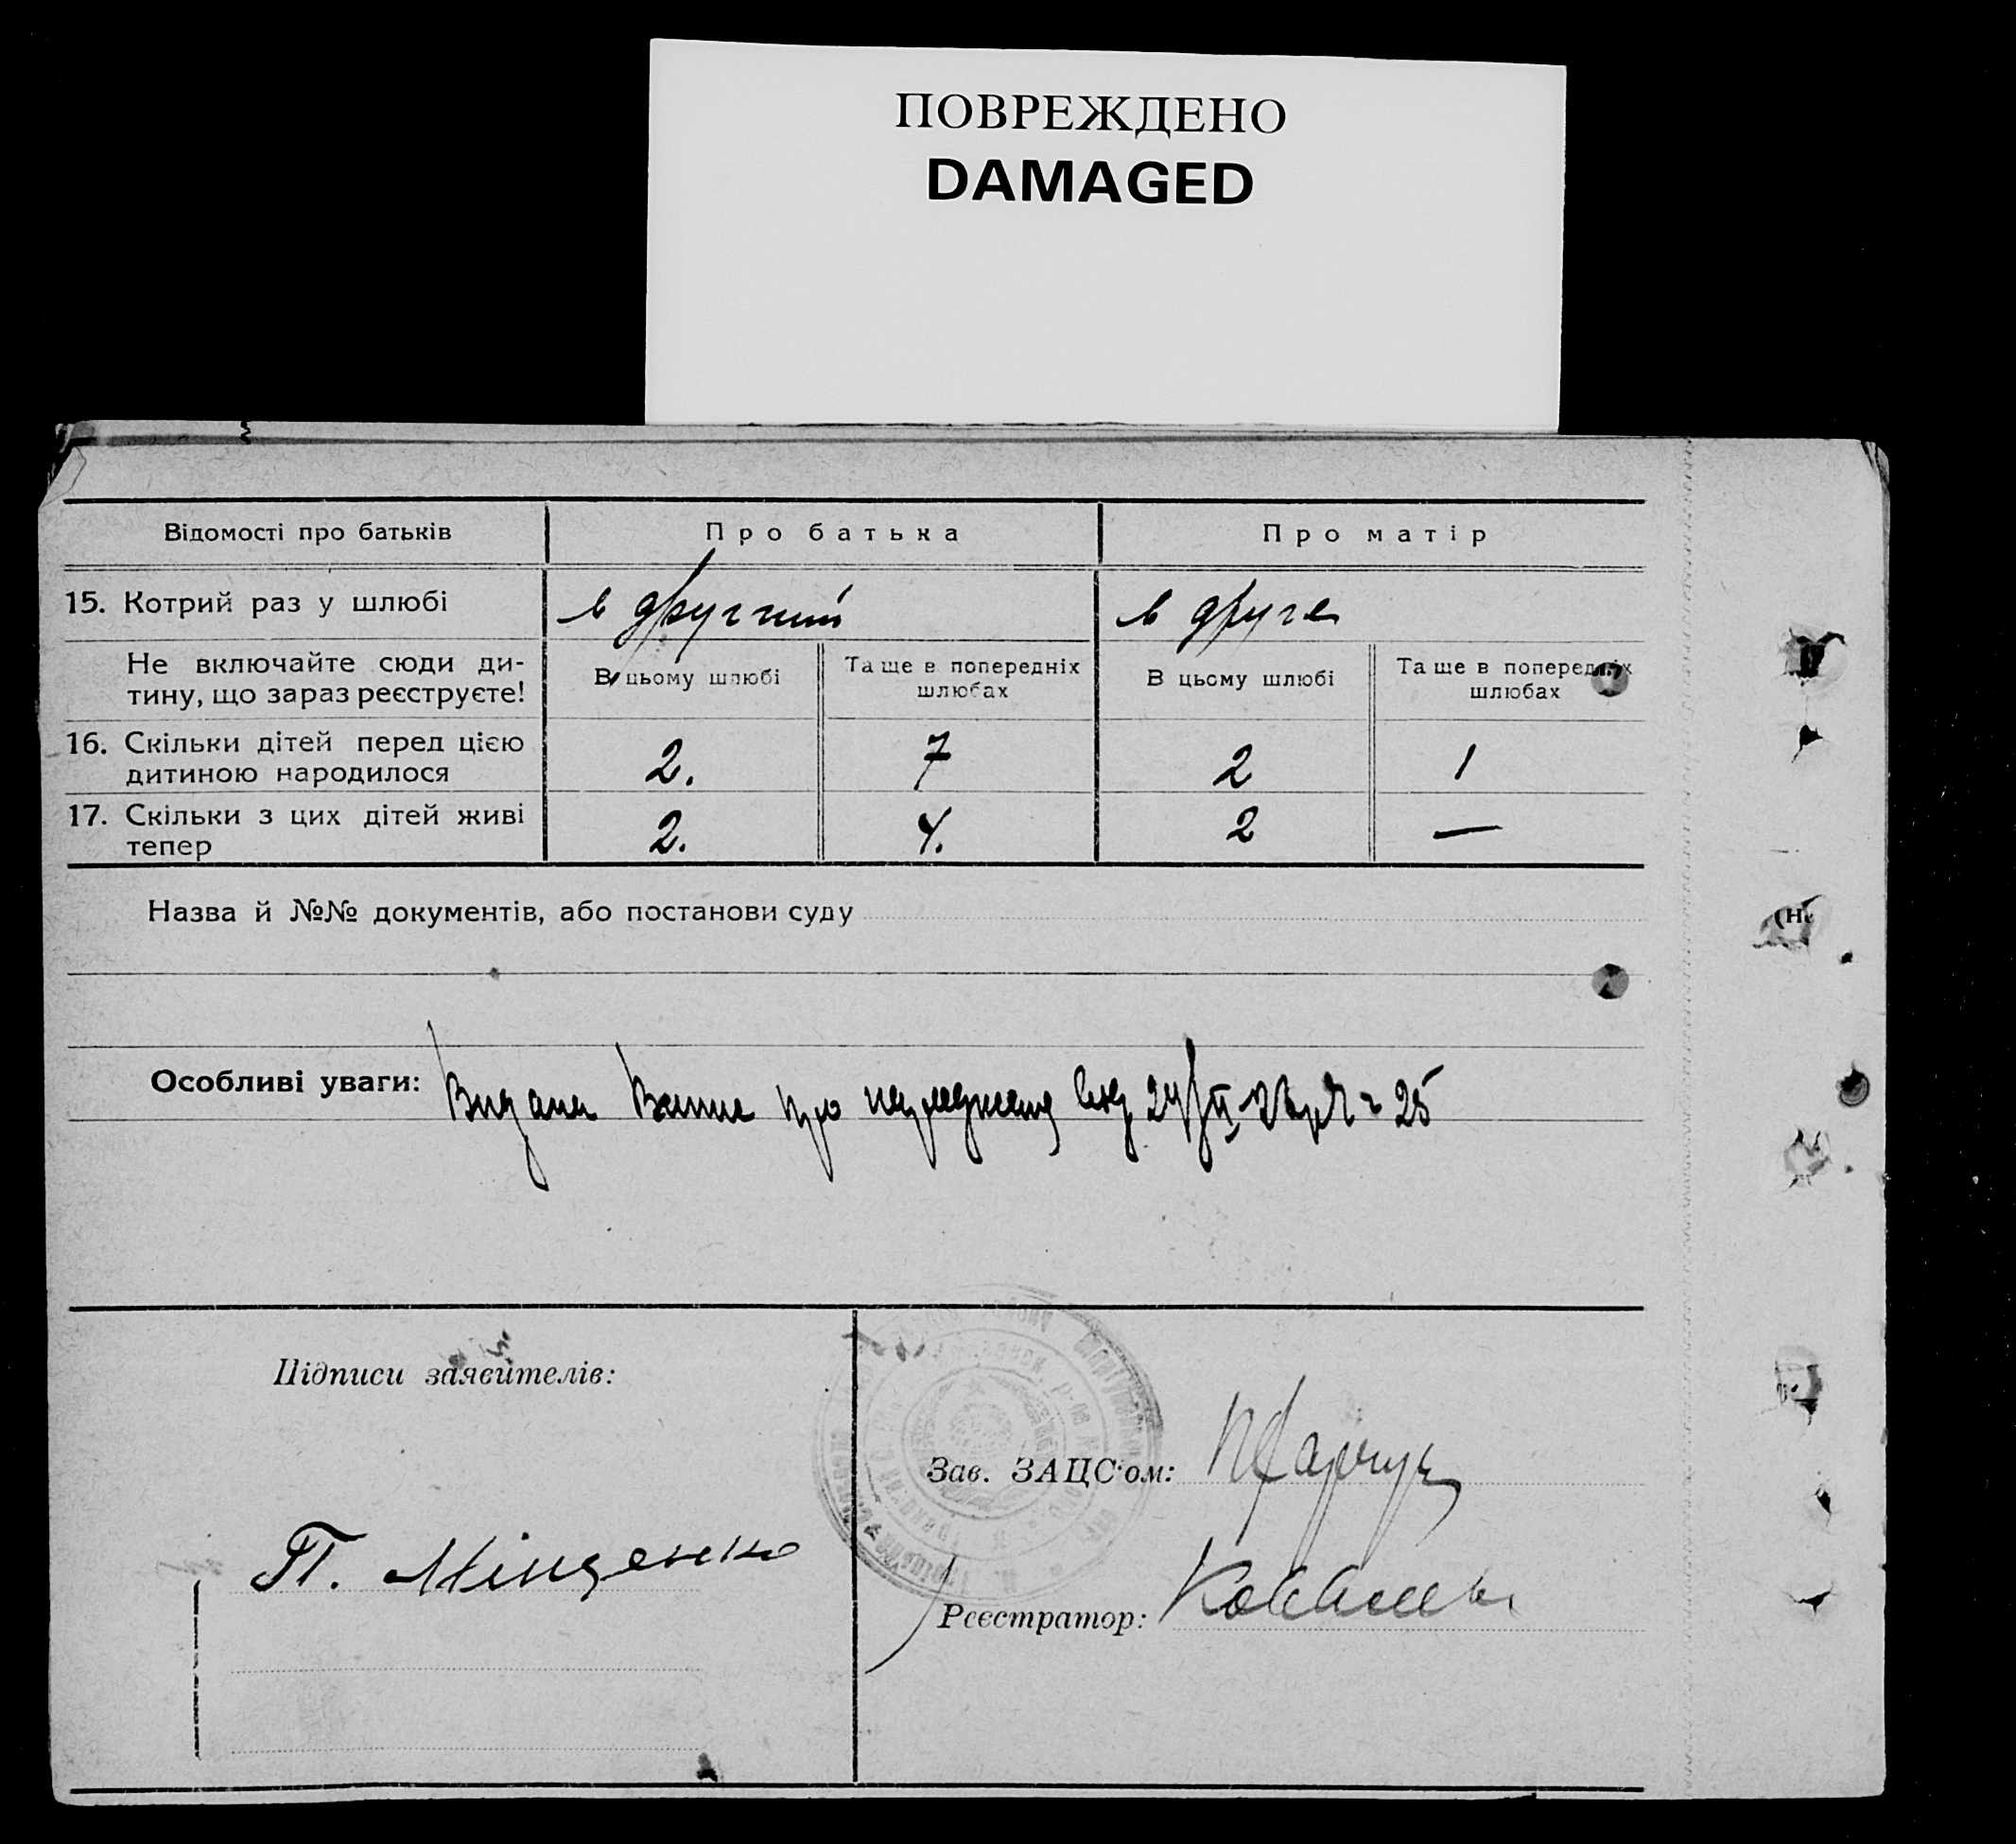 ПОВРЕЖДЕНО
DAMAGED
Відомості про батьків
Про батька
Про матір
15. Котрий раз у шлюбі
в другий
в друге
Не включайте сюди ди-
тину, що зараз реєструєте!
В цьому шлюбі
Та ще в попередніх
шлюбах
В цьому шлюбі
Та ще в попередніх
шлюбах
16. Скільки дітей перед цією
дитиною народилося
2.
7
2
1
17. Скільки з цих дітей живі
тепер
2.
4.
2
—
Назва й №№ документів, або постанови суду
(Не
Особливі уваги: Видана про 25
Підписи заявителів:
Зав. ЗАЦС'ом:
П. Міщенко
Реєстратор: